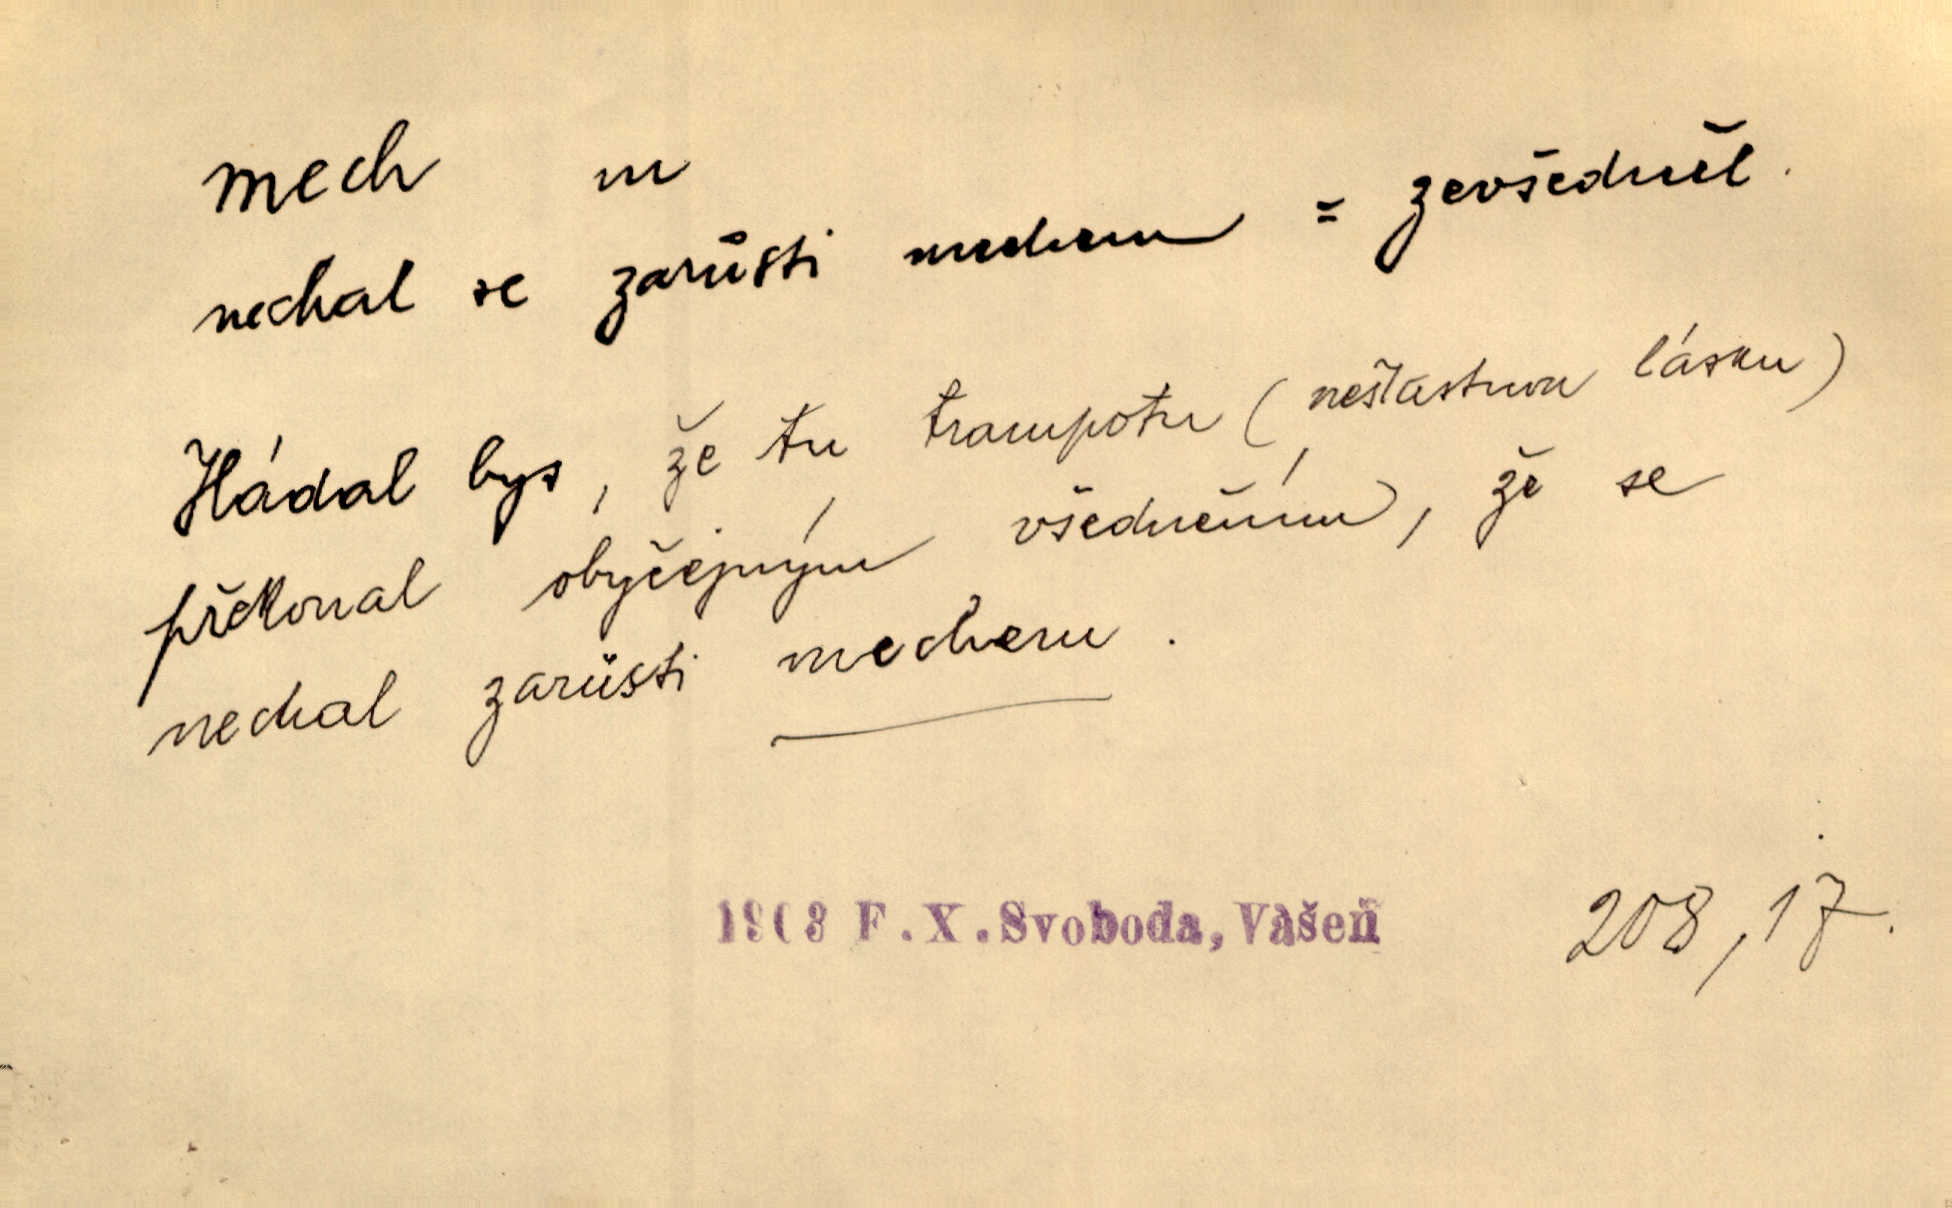 mech m
nechal se zarůsti mechem = zevšedněl.
Hádal bys, že tu trampotu (nešťastnou lásku)
překonal obyčejným všedněním, že se
nechal zarůsti mechem.
1903 F. X. Svoboda, Vášeň 208, 17.